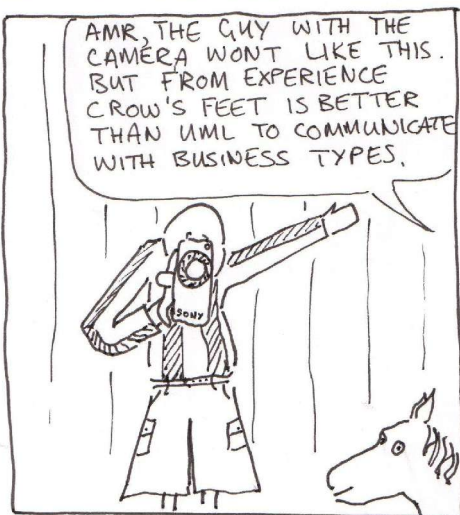 AMR, THE GUY WITH THE
CAMERA WONT LIKE THIS.
BUT FROM EXPERIENCE
CROW'S FEET IS BETTER
THAN UML TO COMMUNICATE
WITH BUSINESS TYPES.
SONY